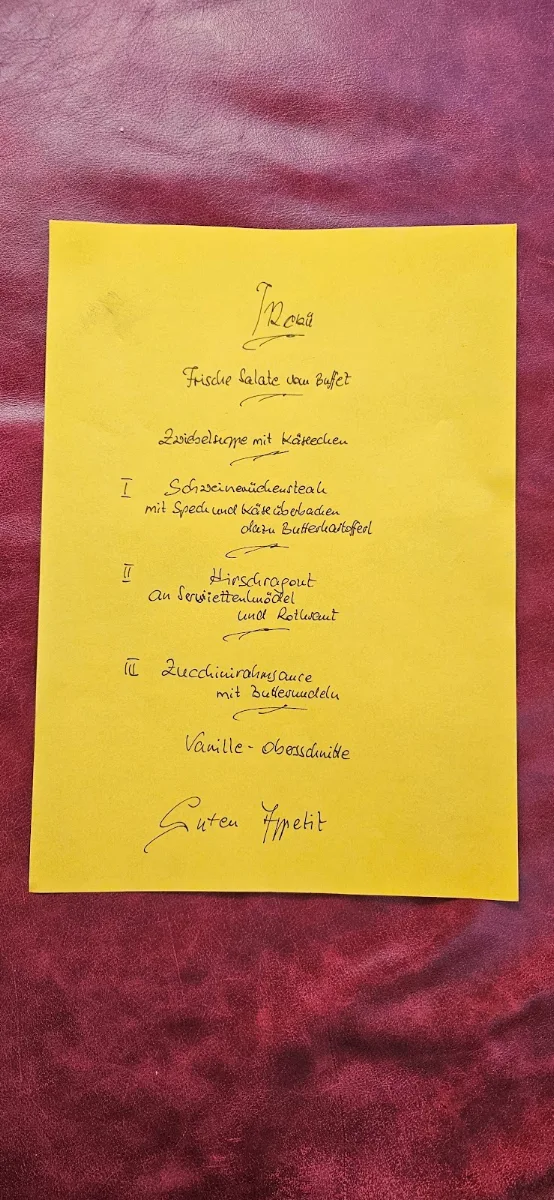 Menü
Frische Salate vom Buffet
Zwiebelsuppe mit Käseecken
I Schweinerückensteak
mit Speck und Käse überbacken
dazu Butterkartofferl
II Hirschragout
an Serviettenknödel
und Rotkraut
III Zucchinirahmsauce
mit Butternudeln
Vanille-Obersschnitte
Guten Appetit